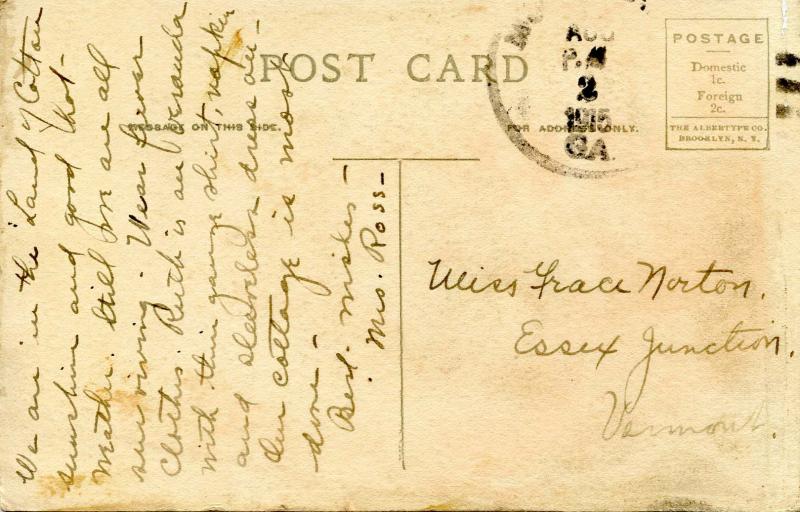 POST CARD
MESSAGE ON THIS SIDE.
FOR ADDRESS ONLY.
AUG
P.M
2
1915
GA.
POSTAGE
Domestic
1c.
Foreign
2c.
THE ALBERTYPE CO.
BROOKLYN, N. Y.
We are in the "Land of Cotton
sunshine and good hot-
weather. Still we are all
surviving. Wear fewer
clothes. Ruth is on veranda
with thin gauze shirt, napkin
and sleeveless dress on-
Our cottage is most
done-
Best- wishes-
Mrs. Ross-
Miss Grace Norton.
Essex Junction.
Vermont.